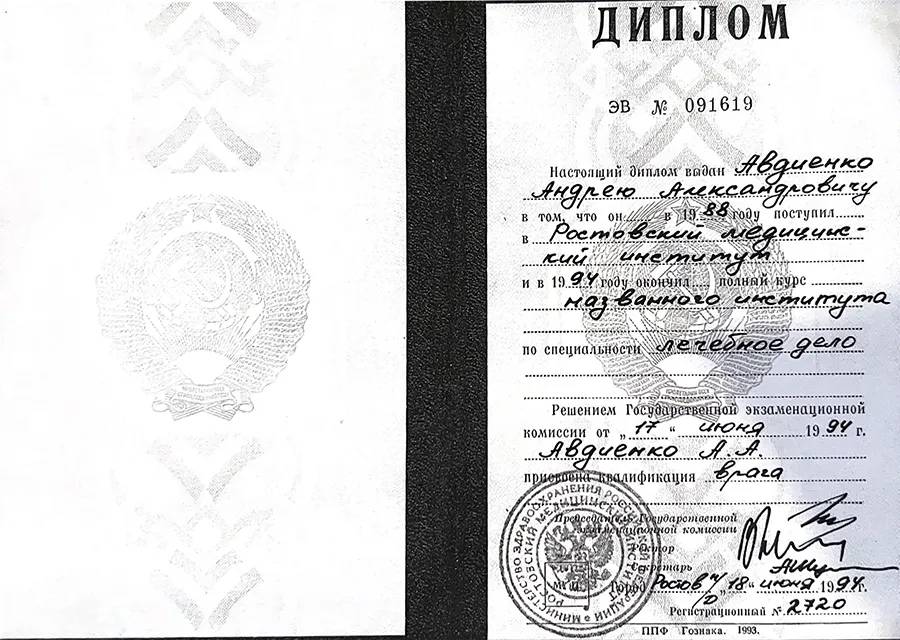 ДИПЛОМ
ЭВ № 091619
Настоящий диплом выдан Авдиенко
Андрею Александровичу
в том, что он в 1988 году поступил
в Ростовский медицинс-
кий институт
и в 1994 году окончил полный курс
названного института
по специальности лечебное дело
Решением Государственной экзаменационной
комиссии от „17“ июня 1994 г.
Авдиенко А.А.
присвоена квалификация врача
Председатель Государственной
экзаменационной комиссии
Ректор
Секретарь
Город Ростов н/Д „18“ июня 1994г.
Регистрационный № 2720
МИНИСТЕРСТВО ЗДРАВООХРАНЕНИЯ РОССИЙСКОЙ ФЕДЕРАЦИИ
РОСТОВСКИЙ МЕДИЦИНСКИЙ ИНСТИТУТ
ППФ Гознака. 1993.